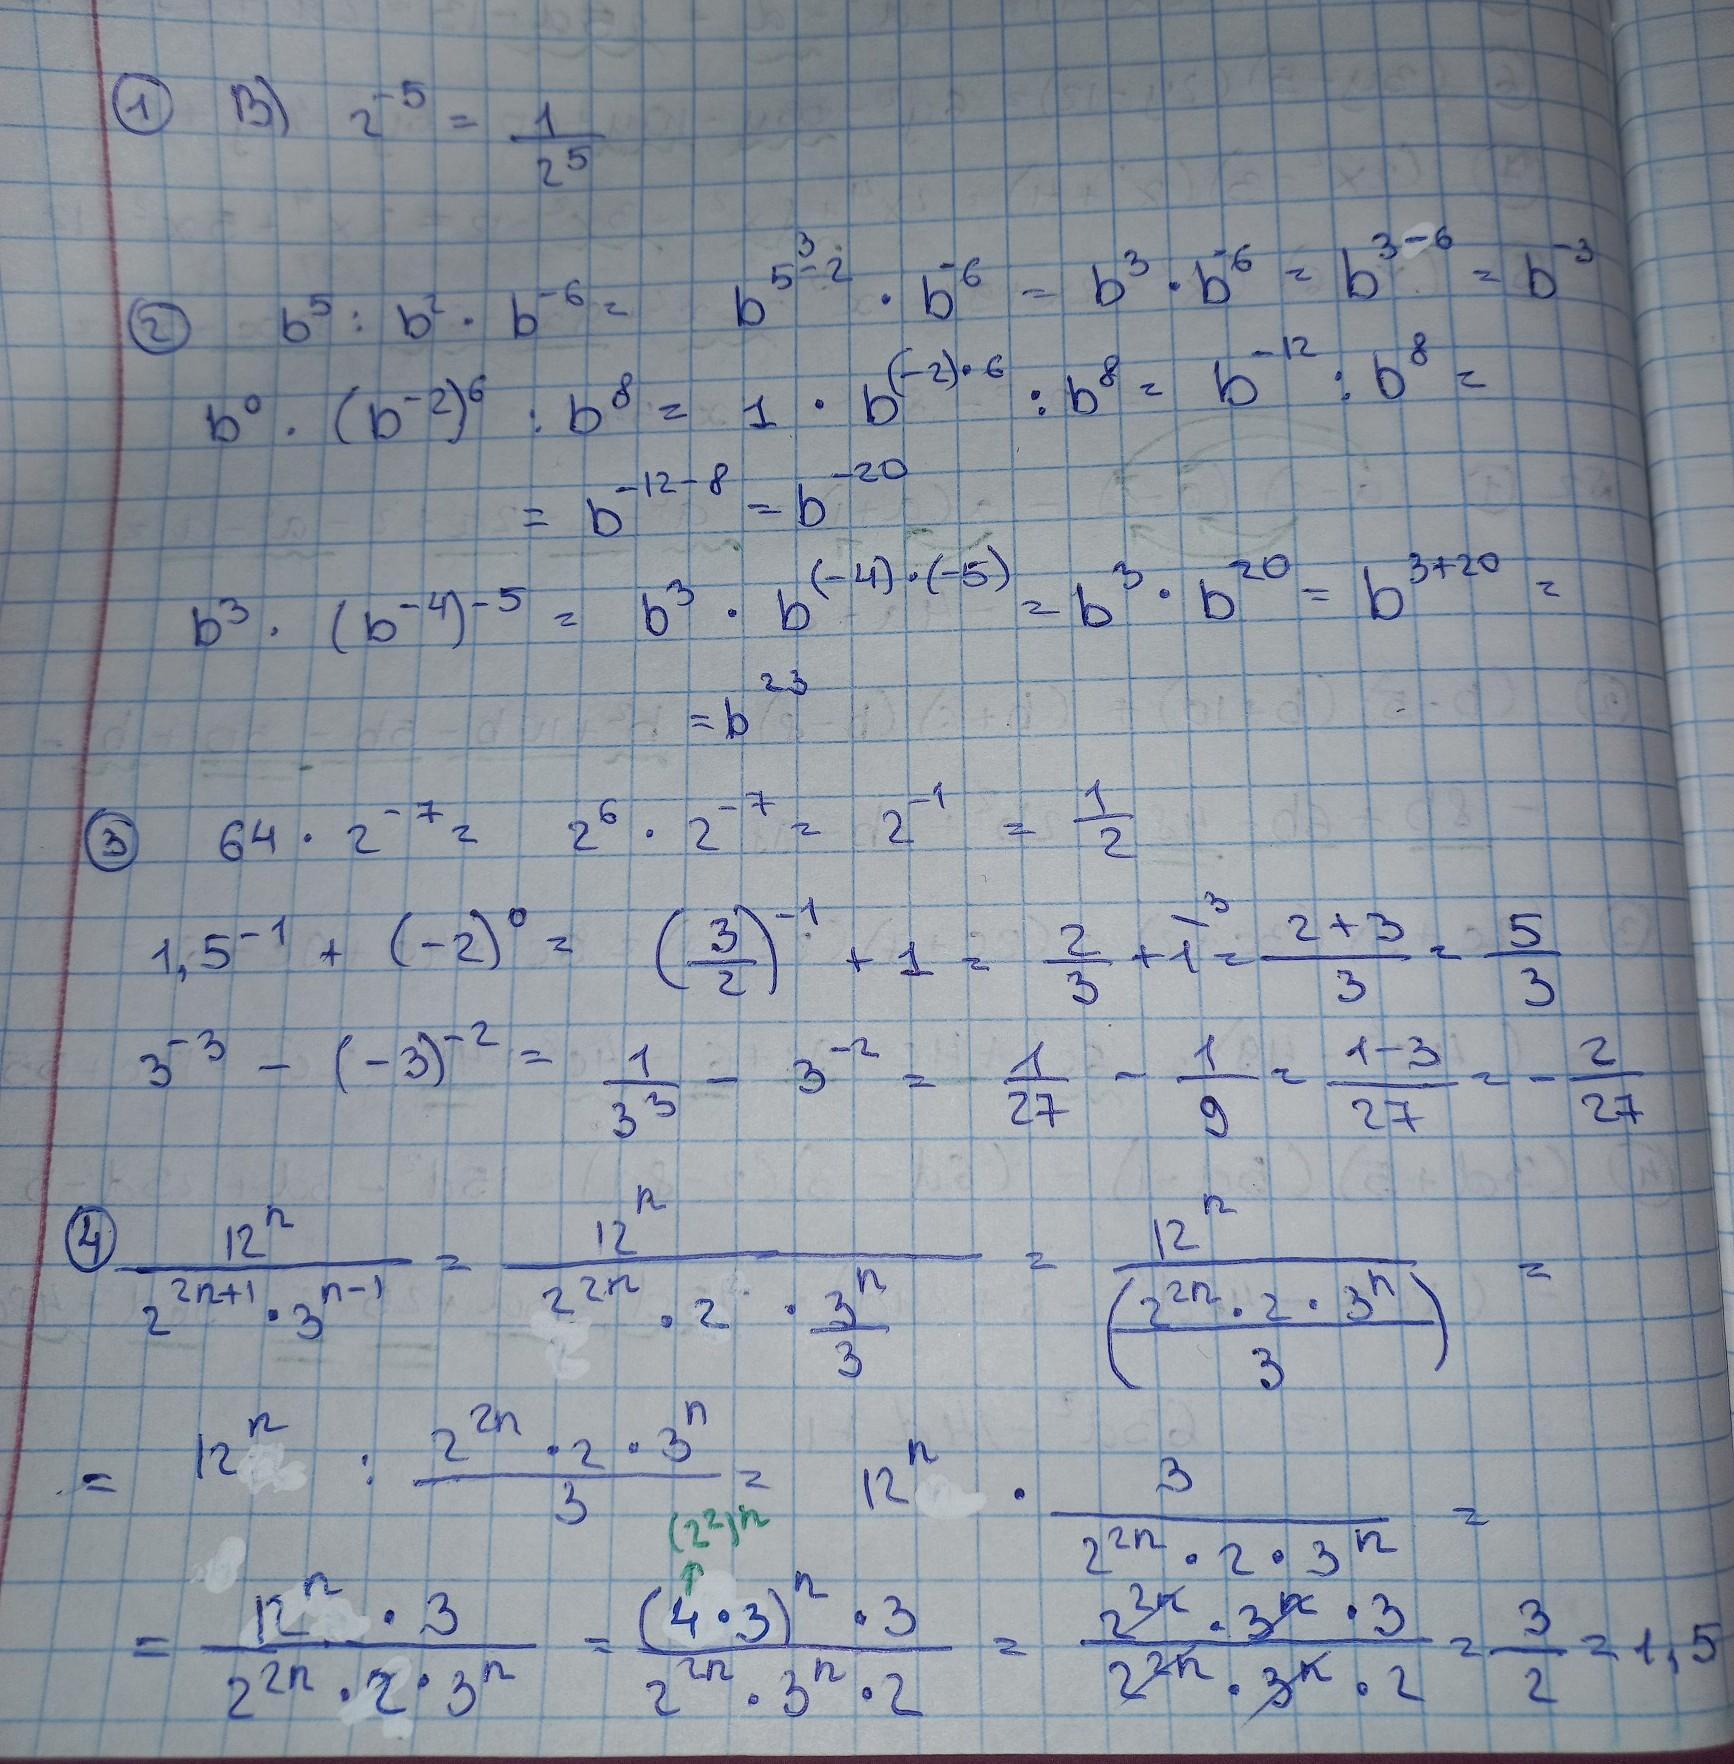 ① В) 2⁻⁵ = 1/2⁵
② b⁵ : b² · b⁻⁶ = b⁵⁻² · b⁻⁶ = b³ · b⁻⁶ = b³⁻⁶ = b⁻³
b⁰ · (b⁻²)⁶ : b⁸ = 1 · b⁽⁻²⁾˙⁶ : b⁸ = b⁻¹² : b⁸ =
= b⁻¹²⁻⁸ = b⁻²⁰
b³ · (b⁻⁴)⁻⁵ = b³ · b⁽⁻⁴⁾˙⁽⁻⁵⁾ = b³ · b²⁰ = b³⁺²⁰ =
= b²³
③ 64 · 2⁻⁷ = 2⁶ · 2⁻⁷ = 2⁻¹ = 1/2
1,5⁻¹ + (-2)⁰ = (3/2)⁻¹ + 1 = 2/3 + 1\³ = (2+3)/3 = 5/3
3⁻³ - (-3)⁻² = 1/3³ - 3⁻² = 1/27 - 1/9 = (1-3)/27 = - 2/27
④ 12ⁿ/(2²ⁿ⁺¹ · 3ⁿ⁻¹) = 12ⁿ/(2²ⁿ · 2 · 3ⁿ/3) = 12ⁿ/((2²ⁿ · 2 · 3ⁿ)/3) =
= 12ⁿ : (2²ⁿ · 2 · 3ⁿ)/3 = 12ⁿ · 3/(2²ⁿ · 2 · 3ⁿ) =
(2²)ⁿ
= (12ⁿ · 3)/(2²ⁿ · 2 · 3ⁿ) = ((4 · 3)ⁿ · 3)/(2²ⁿ · 3ⁿ · 2) = (2²ⁿ · 3ⁿ · 3)/(2²ⁿ · 3ⁿ · 2) = 3/2 = 1,5